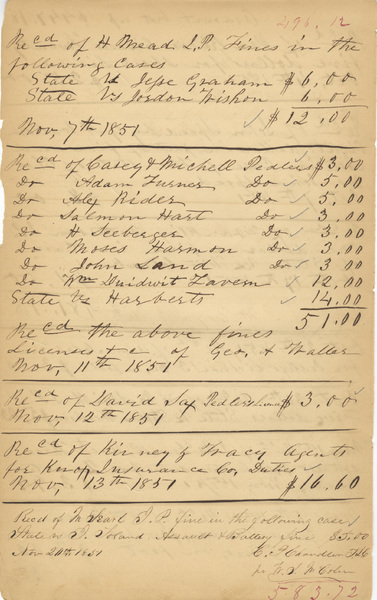 Recd of H Mead J.P. Fines in the
following Cases
State Vs Jesse Graham $6.00
State Vs Jordon Wishon 6.00
Nov, 7th 1851 $12.00
Recd of Casey & Michell Pedlers $3.00
Do Adam Turner Do 5.00
Do Alex Rider Do 5.00
Do Salmon Hart Do 3.00
Do H Seeberger Do 3.00
Do Moses Harmon Do 3.00
Do John Land Do 3.00
Do Wm 12.00
State Vs Harberts 14.00
51.00
Recd the above fines
Licenses &c of Geo, H Waller
Nov, 11th 1851
Recd of David Pedlers $3.00
Nov, 12th 1851
Recd of Kinney & Tracy Agents
for Knox Insurance Co, Duties
Nov, 13th 1851 $16.60
Recd of J.P. fine in the following case
State vs Assault & Battery fine $5.00
Nov 20th 1851 E. P. Chandler
583.72